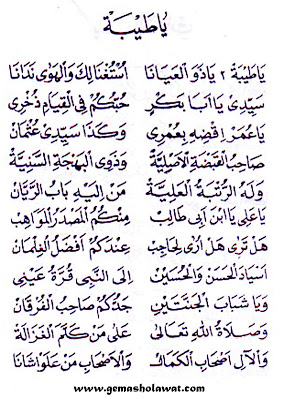 يَاطَيْبَة
يَاطَيْبَة ٢ يَاذَوَ الْعَيَانَا اُسْتُغْنَالِكْ وَالْهَوٰى نَدَانَا
سَيِّدِيْ يَا اَبَا بَكَرٍ حُبُّكُمْ فِى الْقِيَامِ ذُخْرِى
يَاعُمَرْ اِقْضِهِ بِعُمْرِى وَكَذَا سَيِّدِيْ عُثْمَانْ
صَاحِبُ الْقَبْضَةِ الْاَصِيْلِيَّةْ وَذَوِى الْبَهْجَةِ السَّنِيَّةْ
وَلَهُ الرُّتْبَةُ الْعَلِيَّةْ مَنْ اِلَيْهِ بَابُ الرَّيَّانْ
يَاعَلِى يَا ابْنَ اَبِى طَالِبْ مِنْكُمُ الْمَصْدَرُ الْمَوَاهِبْ
هَلْ تَرٰى هَلْ اُرٰى لِحَاجِبْ عِنْدَكُمْ اَفْضَلُ الْغِلْمَانْ
اَسْيَادِ الْحَسَنْ وَالْحُسَيْنْ اِلَى النَّبِيْ قُرَّةْ عَيْنِيْ
وَيَا شَبَابَ الْجَنَّتَيْنِ جَدُّكُمْ صَاحِبُ الْفُرْقَانْ
وَصَلَاةُ اللهِ تَعَالٰى عَلٰى مَنْ كَلَّمَ الْغَزَالَةْ
وَالْآلِ اَصْحَابِ الْكَمَالْ وَالْاَصْحَابِ مَنْ عَلَوْا شَانَا
www.gemasholawat.com